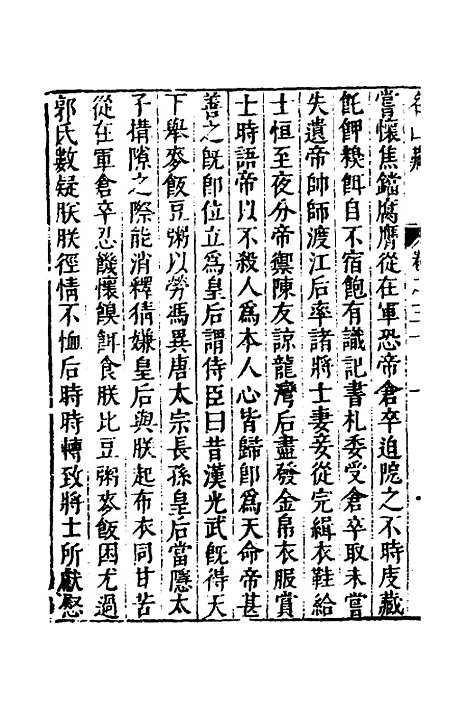 名山藏 卷之三十 一
嘗懷焦鐺腐膺從在軍恐帝倉卒迫阨之不時庋藏
飥餅糗餌自不宿飽有識記書札委受倉卒取未嘗
失遺帝帥師渡江后率諸將士妻妾從完緝衣鞋給
士恒至夜分帝禦陳友諒龍灣后盡發金帛衣服賞
士時語帝以不殺人為本人心皆歸即為天命帝甚
善之旣即位立為皇后謂侍臣曰昔漢光武旣得天
下舉麥飯豆粥以勞馮異唐太宗長孫皇后當隱太
子搆隙之際能消釋猜嫌皇后與朕起布衣同甘苦
從在軍倉卒忍饑懷餱餌食朕比豆粥麥飯困尤過
郭氏數疑朕朕徑情不恤后時時轉致將士所獻慰